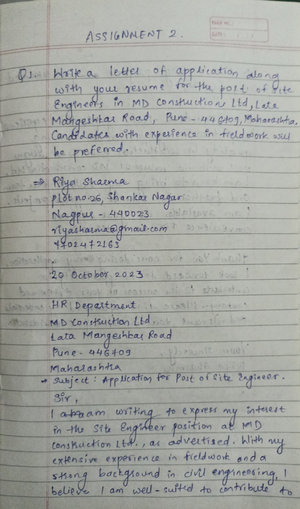 ASSIGNMENT 2.
Q1. Write a letter of application along
with your resume for the post of site
Engineers in MD Constructions Ltd, Lata
Mangeshkar Road, Pune - 446709, Maharashtra.
Candidates with experience in fieldwork will
be preferred.
→ Riya Sharma
plot no-26, Shankar Nagar
Nagpur - 440023
riyasharma@gmail.com
9702472163
20 October 2023
HR Department
MD Construction Ltd.
Lata Mangeshkar Road
Pune - 446709
Maharashtra
→ Subject : Application for Post of Site Engineer.
Sir,
I am writing to express my interest
in the Site Engineer position at MD
Construction Ltd., as advertised. With my
extensive experience in fieldwork and a
strong background in civil engineering, I
believe I am well-suited to contribute to